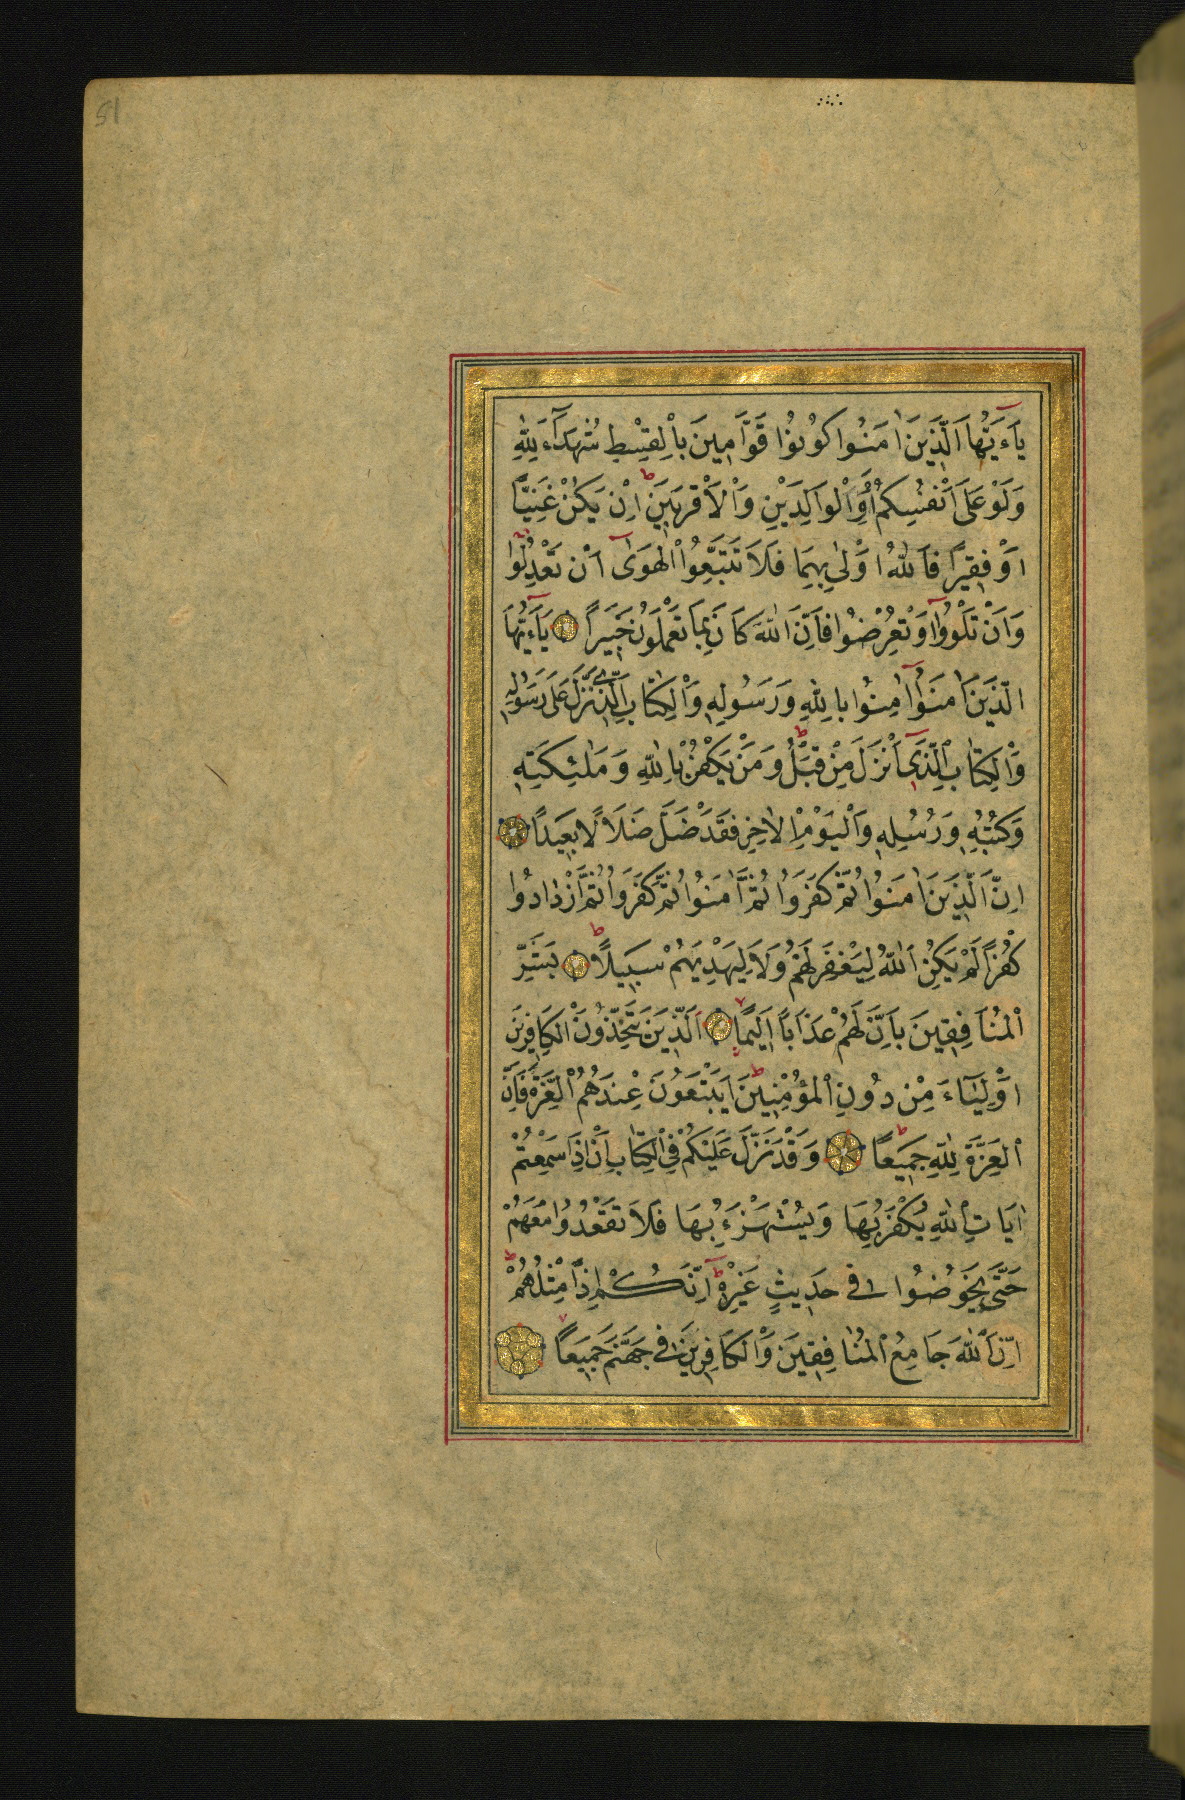 51
يَآءَيُّهَا الَّذِينَ اٰمَنُوا كُونُوا قَوَّامِينَ بِالْقِسْطِ شُهَدَآءَ لِلّٰهِ
وَلَوْ عَلَى اَنْفُسِكُمْ اَوِ الْوَالِدَيْنِ وَالْاَقْرَبِينَ ط اِنْ يَكُنْ غَنِيًّا
اَوْ فَقِيرًا فَاللّٰهُ اَوْلٰى بِهِمَا فَلَا تَتَّبِعُوا الْهَوٰٓى اَنْ تَعْدِلُوا
وَاِنْ تَلْوُٓوا اَوْ تُعْرِضُوا فَاِنَّ اللّٰهَ كَانَ بِمَا تَعْمَلُونَ خَبِيرًا يَآءَيُّهَا
الَّذِينَ اٰمَنُوٓا اٰمِنُوا بِاللّٰهِ وَرَسُولِهِ وَالْكِتَابِ الَّذِي نَزَّلَ عَلَى رَسُولِهِ
وَالْكِتَابِ الَّذِيٓ اَنْزَلَ مِنْ قَبْلُ ط وَمَنْ يَكْفُرْ بِاللّٰهِ وَمَلٰئِكَتِهِ
وَكُتُبِهِ وَرُسُلِهِ وَالْيَوْمِ الْاٰخِرِ فَقَدْ ضَلَّ ضَلَالًا بَعِيدًا
اِنَّ الَّذِينَ اٰمَنُوا ثُمَّ كَفَرُوا ثُمَّ اٰمَنُوا ثُمَّ كَفَرُوا ثُمَّ ازْدَادُوا
كُفْرًا لَمْ يَكُنِ اللّٰهُ لِيَغْفِرَ لَهُمْ وَلَا لِيَهْدِيَهُمْ سَبِيلًا ط بَشِّرِ
الْمُنَافِقِينَ بِاَنَّ لَهُمْ عَذَابًا اَلِيمًا الَّذِينَ يَتَّخِذُونَ الْكَافِرِينَ
اَوْلِيَآءَ مِنْ دُونِ الْمُؤْمِنِينَ ط اَيَبْتَغُونَ عِنْدَهُمُ الْعِزَّةَ فَاِنَّ
الْعِزَّةَ لِلّٰهِ جَمِيعًا ط وَقَدْ نَزَّلَ عَلَيْكُمْ فِي الْكِتَابِ اَنْ اِذَا سَمِعْتُمْ
اٰيَاتِ اللّٰهِ يُكْفَرُ بِهَا وَيُسْتَهْزَءُ بِهَا فَلَا تَقْعُدُوا مَعَهُمْ
حَتّٰى يَخُوضُوا فِي حَدِيثٍ غَيْرِهِٓ ط اِنَّكُمْ اِذًا مِثْلُهُمْ ط
اِنَّ اللّٰهَ جَامِعُ الْمُنَافِقِينَ وَالْكَافِرِينَ فِي جَهَنَّمَ جَمِيعًا